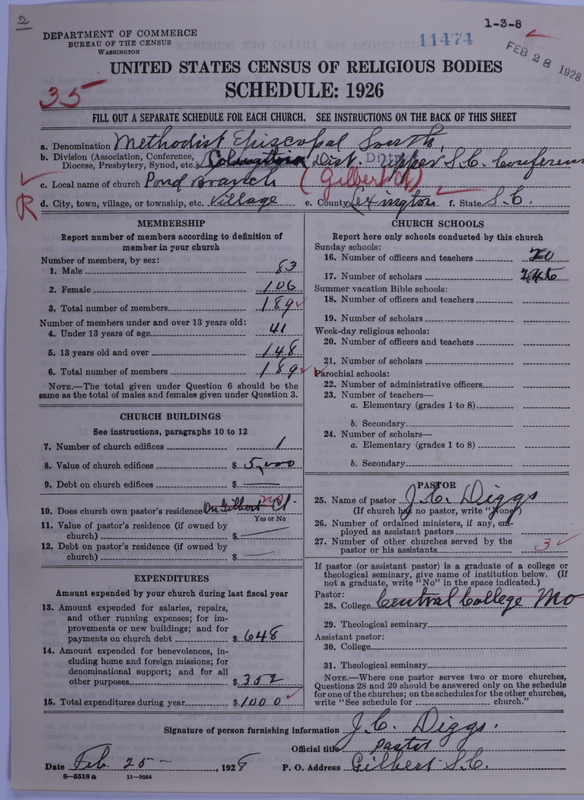 2
DEPARTMENT OF COMMERCE
BUREAU OF THE CENSUS
WASHINGTON
11474
1-3-8
FEB 28 1928
UNITED STATES CENSUS OF RELIGIOUS BODIES
SCHEDULE: 1926
35
FILL OUT A SEPARATE SCHEDULE FOR EACH CHURCH. SEE INSTRUCTIONS ON THE BACK OF THIS SHEET
a. Denomination Methodist Episcopal South,
b. Division (Association, Conference, Diocese, Presbytery, Synod, etc. Columbia Dist. Upper S.C. Conference
c. Local name of church Pond Branch (Gilbert Ch)
R
d. City, town, village, or township, etc. Village e. County Lexington f. State S.C.
MEMBERSHIP
Report number of members according to definition of member in your church
Number of members, by sex:
1. Male 83
2. Female 106
3. Total number of members 189
Number of members under and over 13 years old:
4. Under 13 years of age 41
5. 13 years old and over 148
6. Total number of members 189
NOTE.—The total given under Question 6 should be the same as the total of males and females given under Question 3.
CHURCH BUILDINGS
See instructions, paragraphs 10 to 12
7. Number of church edifices 1
8. Value of church edifices $ 5,000
9. Debt on church edifices $
10. Does church own pastor's residence On Gilbert Ch. no
Yes or No
11. Value of pastor's residence (if owned by church) $
12. Debt on pastor's residence (if owned by church) $
EXPENDITURES
Amount expended by your church during last fiscal year
13. Amount expended for salaries, repairs, and other running expenses; for improvements or new buildings; and for payments on church debt $ 648
14. Amount expended for benevolences, including home and foreign missions; for denominational support; and for all other purposes $ 352
15. Total expenditures during year $ 1000
CHURCH SCHOOLS
Report here only schools conducted by this church
Sunday schools:
16. Number of officers and teachers 20
17. Number of scholars
Summer vacation Bible schools:
18. Number of officers and teachers
19. Number of scholars
Week-day religious schools:
20. Number of officers and teachers
21. Number of scholars
Parochial schools:
22. Number of administrative officers
23. Number of teachers—
a. Elementary (grades 1 to 8)
b. Secondary
24. Number of scholars—
a. Elementary (grades 1 to 8)
b. Secondary
PASTOR
25. Name of pastor J.C. Diggs
(If church has no pastor, write "None")
26. Number of ordained ministers, if any, employed as assistant pastors
27. Number of other churches served by the pastor or his assistants 3
If pastor (or assistant pastor) is a graduate of a college or theological seminary, give name of institution below. (If not a graduate, write "No" in the space indicated.)
Pastor:
28. College Central College Mo
29. Theological seminary
Assistant pastor:
30. College
31. Theological seminary
NOTE.—Where one pastor serves two or more churches, Questions 28 and 29 should be answered only on the schedule for one of the churches; on the schedules for the other churches, write "See schedule for church."
Signature of person furnishing information J.C. Diggs.
Official title Pastor
Date Feb. 25 , 1928 P. O. Address Gilbert S.C.
8—5518a 11—9034